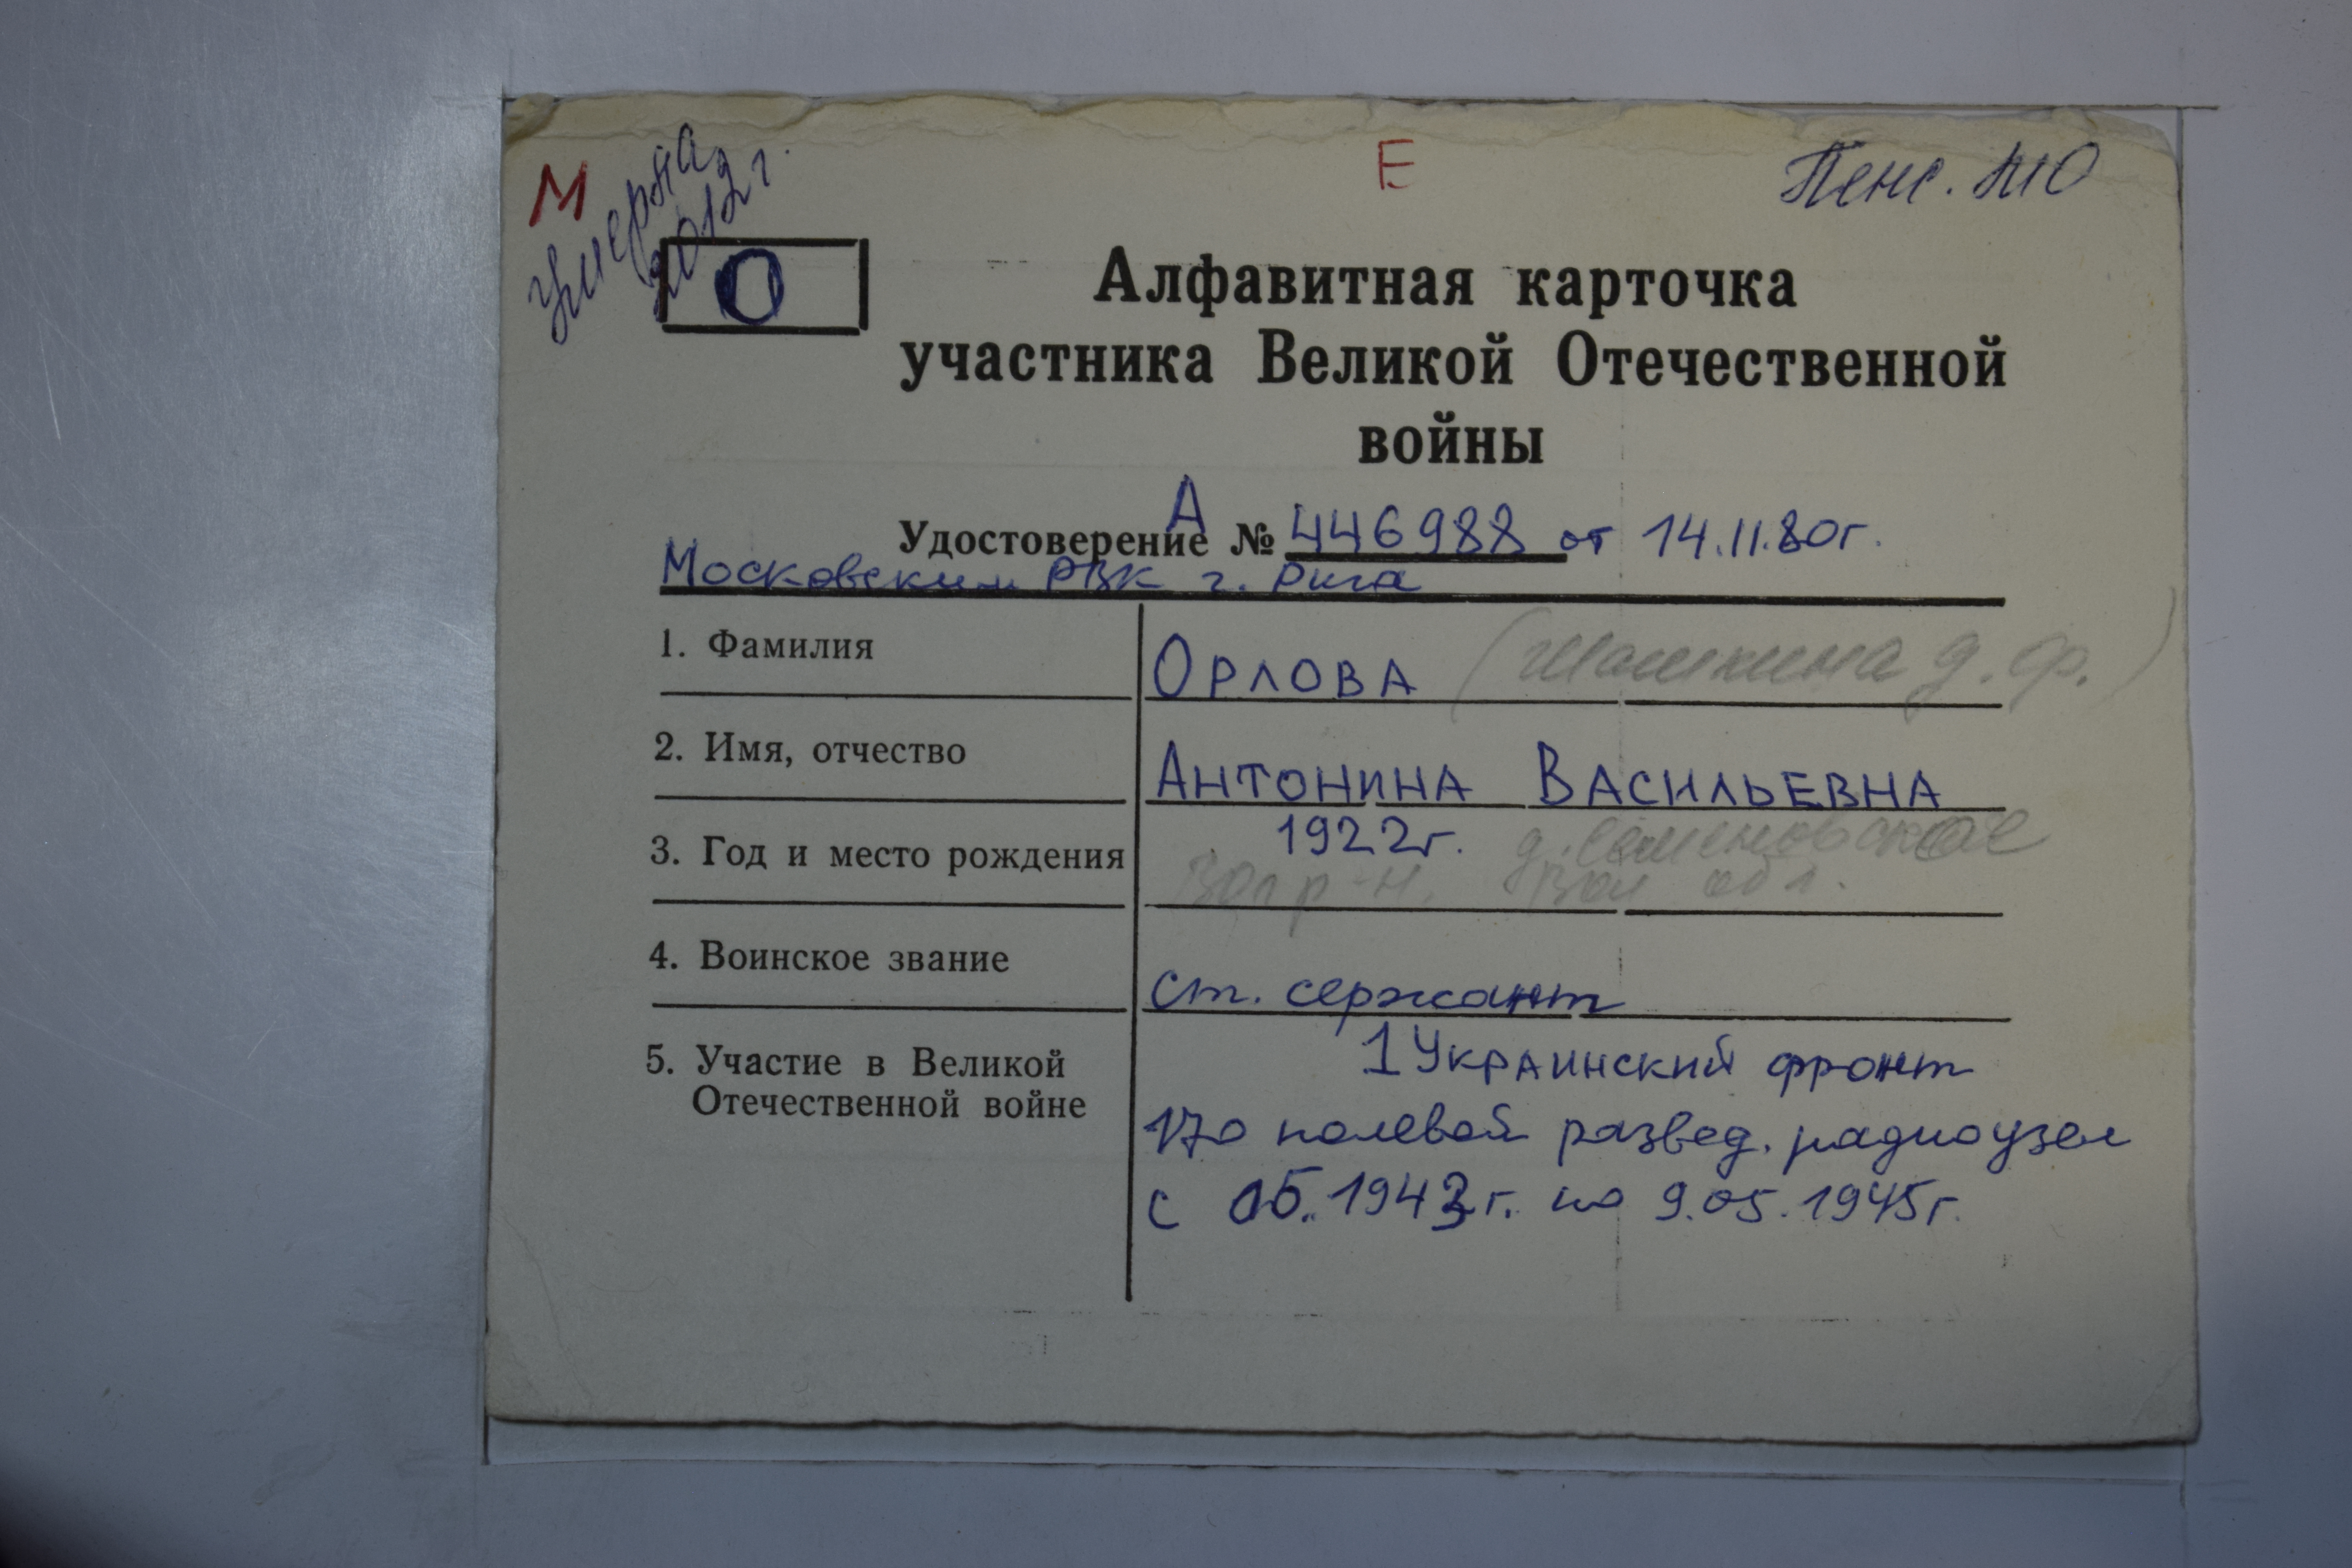 М
Умерла
2012 г.
Е
Пенс. МО
О
Алфавитная карточка
участника Великой Отечественной
войны
А
Удостоверение № 446988 от 14.11.80г.
Московским РВК г. Рига
1. Фамилия
ОРЛОВА (Шашкина д. ф.)
2. Имя, отчество
АНТОНИНА ВАСИЛЬЕВНА
3. Год и место рождения
1922г. д. Семеновское
р-н. Вол обл.
4. Воинское звание
ст. сержант
5. Участие в Великой
Отечественной войне
1 Украинский фронт
170 полевой развед. радиоузел
с 05. 1943 г. по 9.05.1945г.